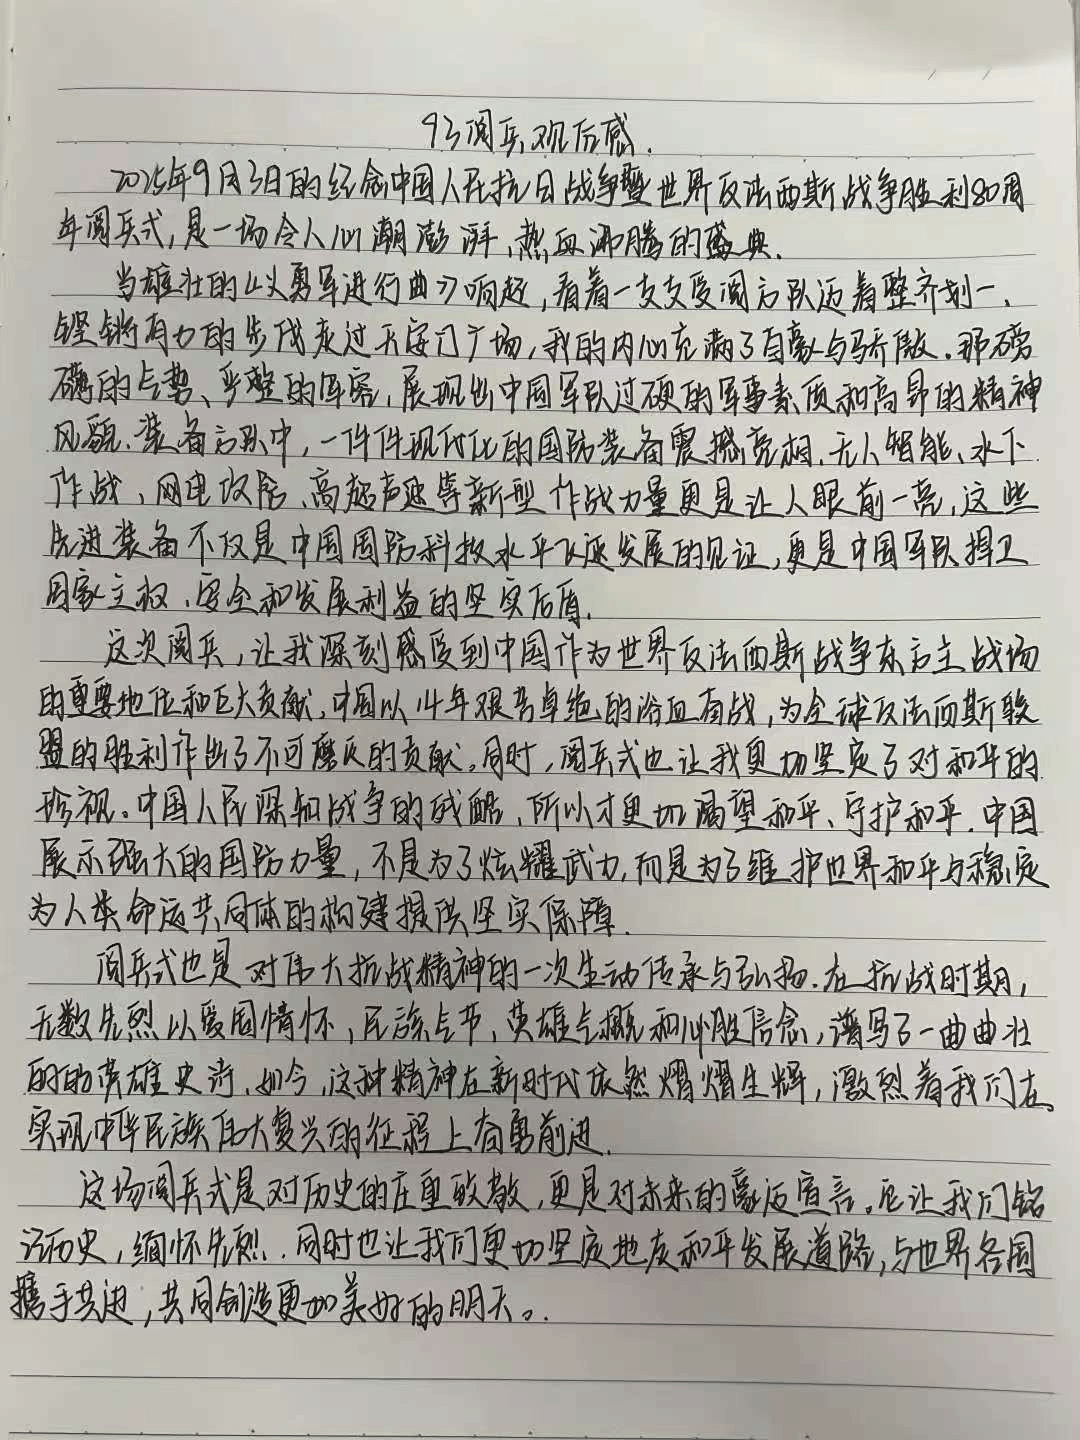 93阅兵观后感.
2025年9月3日的纪念中国人民抗日战争暨世界反法西斯战争胜利80周
年阅兵式,是一场令人心潮澎湃,热血沸腾的盛典.
当雄壮的《义勇军进行曲》响起,看着一支支受阅方队迈着整齐划一、
铿锵有力的步伐走过天安门广场,我的内心充满了自豪与骄傲.那磅
礴的气势、严整的阵容,展现出中国军队过硬的军事素质和高昂的精神
风貌.装备方队中,一件件现代化的国防装备震撼亮相.无人智能、水下
作战、网电攻防、高超声速等新型作战力量更是让人眼前一亮,这些
先进装备不仅是中国国防科技水平飞速发展的见证,更是中国军队捍卫
国家主权、安全和发展利益的坚实后盾.
这次阅兵,让我深刻感受到中国作为世界反法西斯战争东方主战场
的重要地位和巨大贡献,中国以14年艰苦卓绝的浴血奋战,为全球反法西斯联
盟的胜利作出了不可磨灭的贡献。同时,阅兵式也让我更加坚定了对和平的
珍视。中国人民深知战争的残酷,所以才更加渴望和平、守护和平.中国
展示强大的国防力量,不是为了炫耀武力,而是为了维护世界和平与稳定
为人类命运共同体的构建提供坚实保障.
阅兵式也是对伟大抗战精神的一次生动传承与弘扬.在抗战时期,
无数先烈以爱国情怀,民族气节,英雄气概和必胜信念,谱写了一曲曲壮
的的英雄史诗.如今,这种精神在新时代依然熠熠生辉,激烈着我们在
实现中华民族伟大复兴的征程上奋勇前进.
这场阅兵式是对历史的庄重致敬,更是对未来的豪迈宣言。它让我们铭
记历史,缅怀先烈.同时也让我们更加坚定地走和平发展道路,与世界各国
携手共进,共同创造更加美好的明天。.